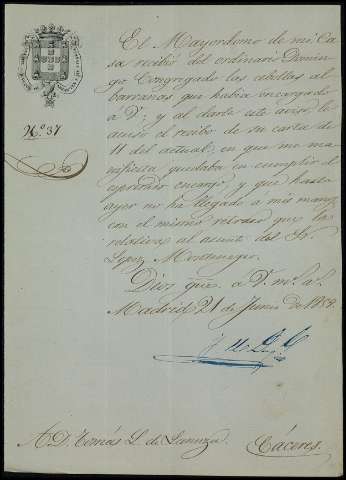 El Mayordomo de mi Ca-
sa recibió del ordinario Domin-
go Congregado las cebollas al-
barranas que había encargado
á V; y al darle este aviso, le
acuso el recibo de su carta de
11 del actual, en que me ma-
nifiesta, quedaba en cumplir el
espresado encargo, y que hasta
ayer no ha llegado á mis manos
con el mismo retraso que la
relativa al asunto del Sr.
Lopez Montenegro.
Dios gue. á V. ms. as.
Madrid 21 de Junio de 1859.
N.o 37
A D. Tomás L. de Lanuza. Cáceres.